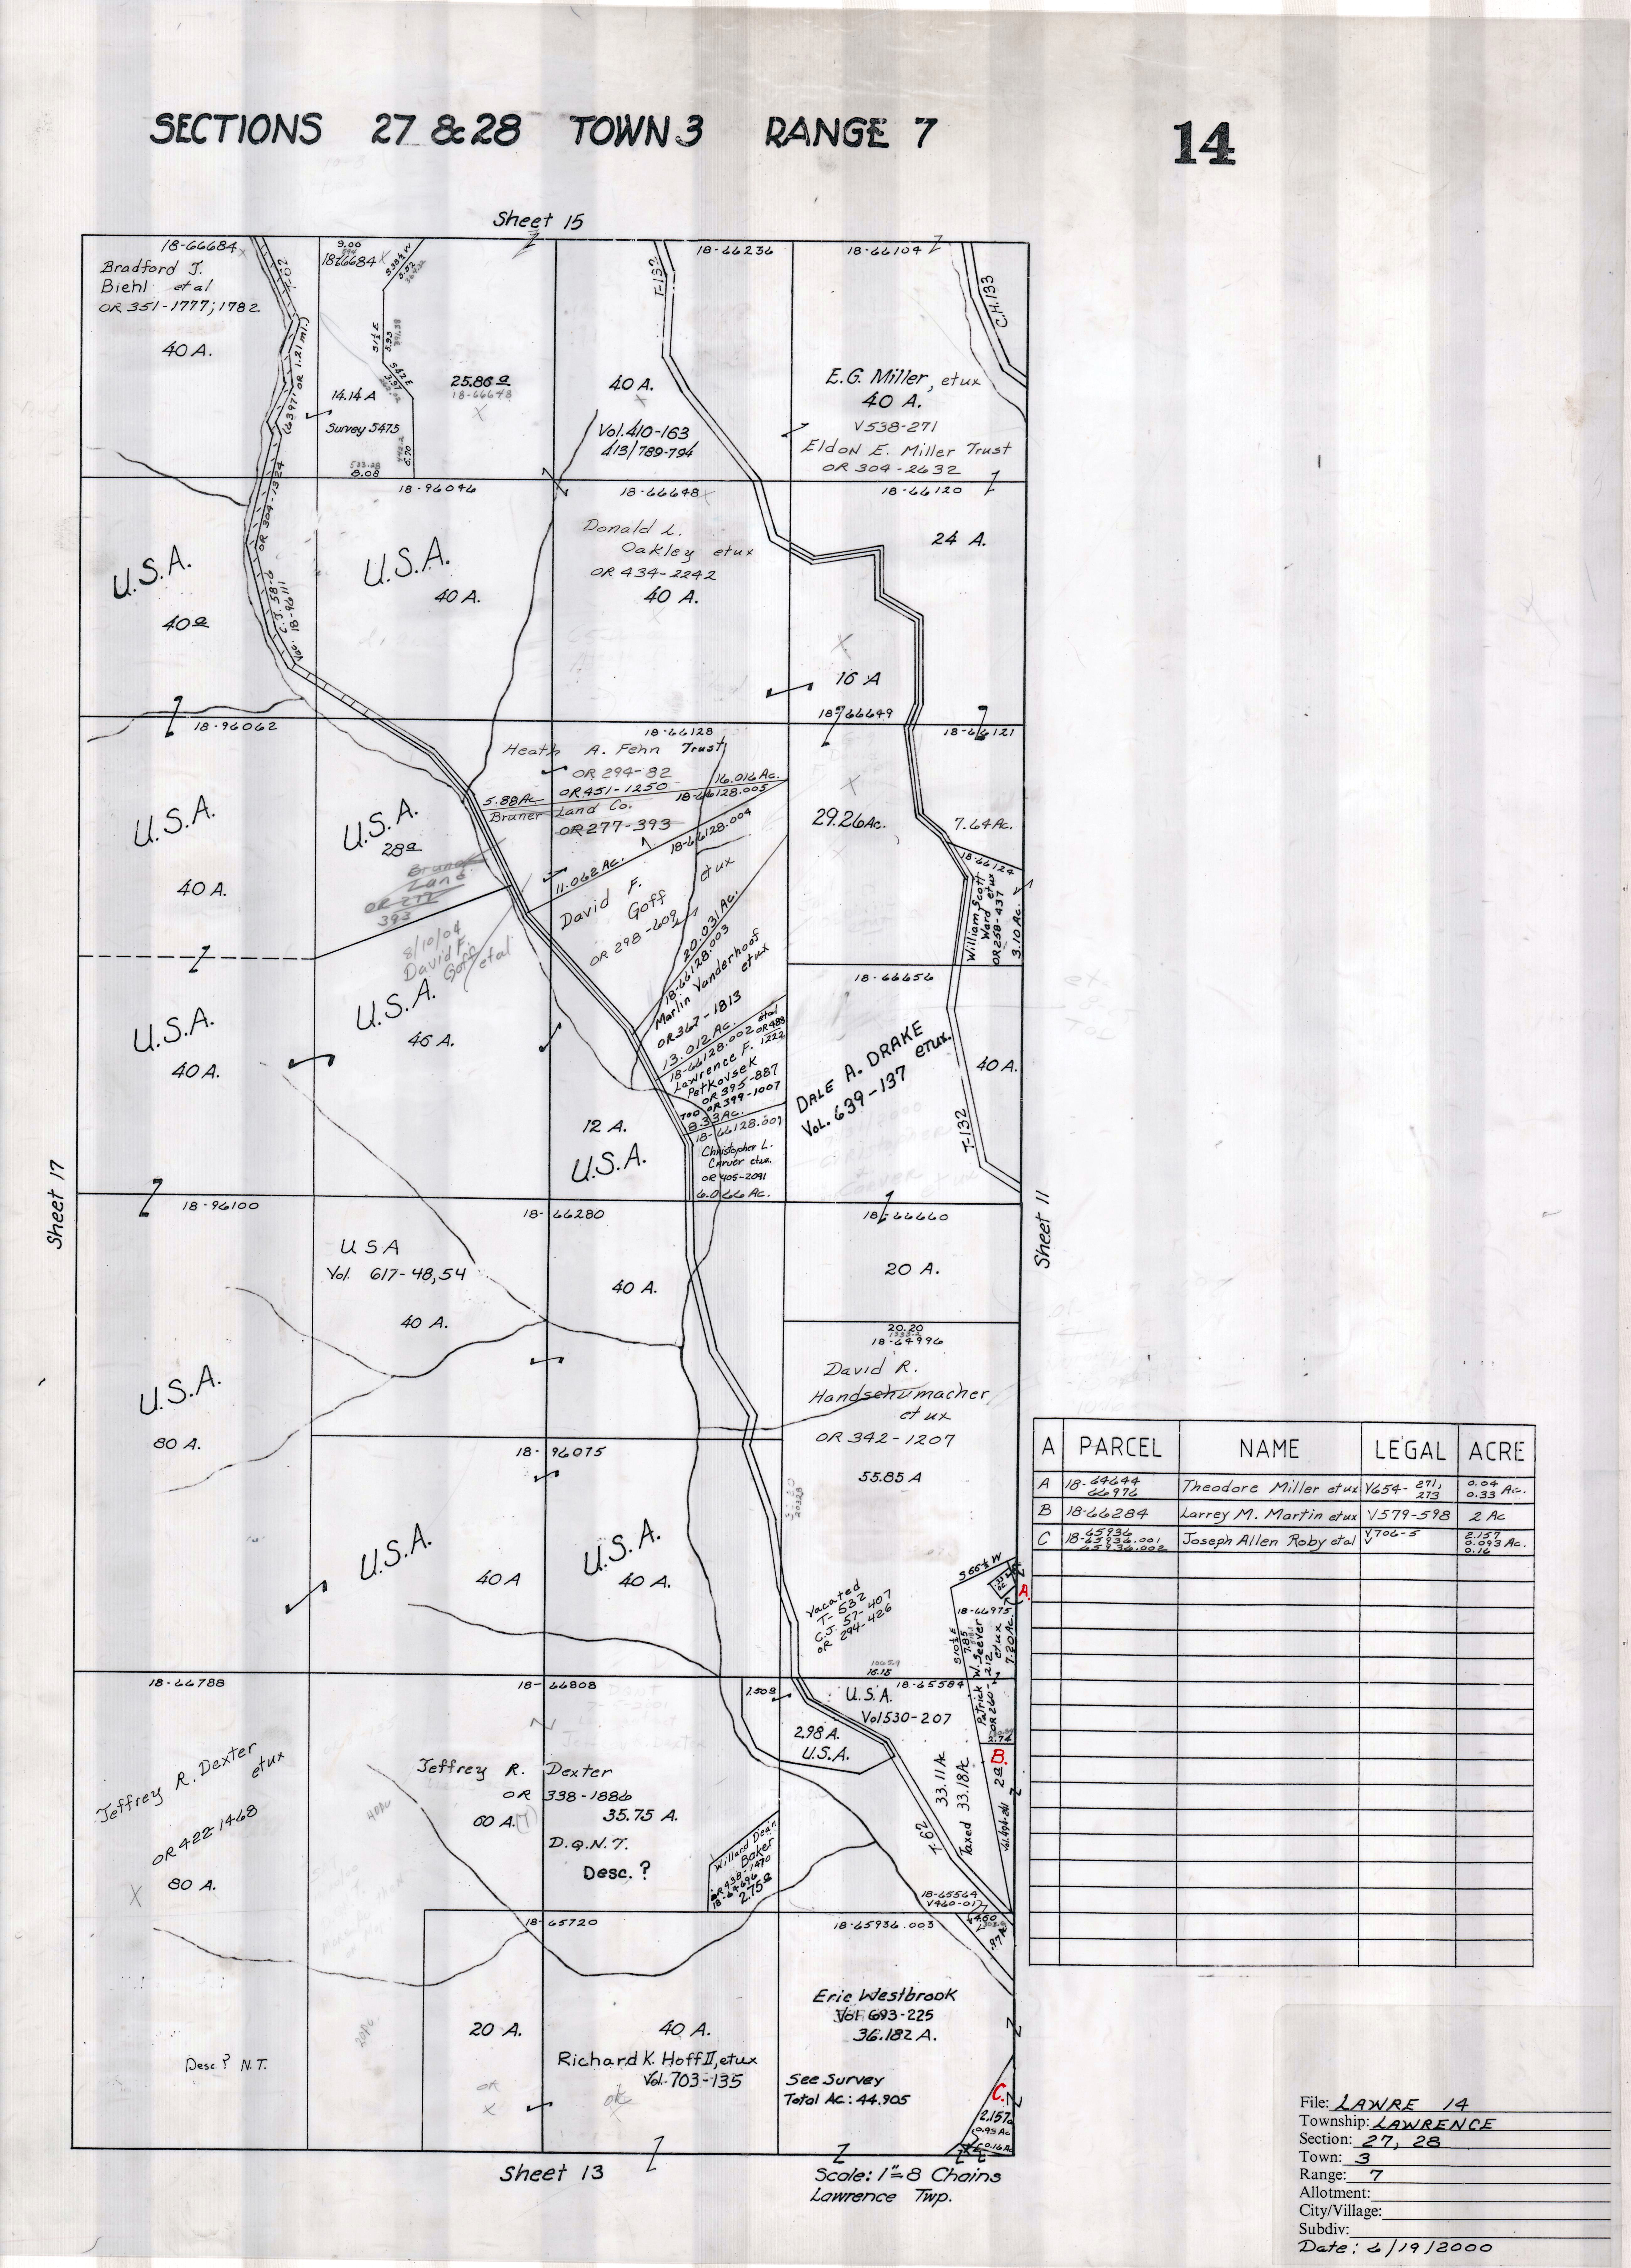 SECTIONS 27 & 28 TOWN 3 RANGE 7
14
Sheet 15
18-66684
Bradford J.
Biehl et al
OR 351-1777; 1782
40 A.
T-702
(6397' OR 1.21 mi.)
OR 304-1324
C.J. 58-9
Vac. 18-96111
9.00
594
18-66684
S 38 1/2 W
S 1 1/2 E
5.93
391.38
S 42 E
3.97
14.14 A
Survey 5475
533.28
8.08
6.70
25.86 a
18-66648
T-132
18-66236
40 A.
Vol. 410-163
413/789-794
18-66104
C.H. 133
E.G. Miller, et ux
40 A.
V538-271
Eldon E. Miller Trust
OR 304-2632
U.S.A.
40 a
18-96046
U.S.A.
40 A.
18-66648
Donald L.
Oakley et ux
OR 434-2242
40 A.
18-66120
24 A.
16 A
18-96062
U.S.A.
40 A.
U.S.A.
28 a
Land
OR 277
393
8/10/04
David F.
Goff et al
18-66128
Heath A. Fehn Trust
OR 294-82
16.016 Ac.
5.88 Ac
OR 451-1250
18-66128.005
Bruner Land Co.
OR 277-393
18-66128.004
11.062 Ac.
David F.
Goff et ux
OR 298-609
20.031 Ac.
18-66128.003
Marlin Vanderhoof
et ux
OR 367-1813
13.012 Ac.
18-66128.002 et al
OR 488
1222
Lawrence F.
Petkovsek
OR 395-887
TOD OR 399-1007
8.33 Ac.
18-66128.001
Christopher L.
Carver et ux.
OR 405-2091
6.066 Ac.
18-66649
29.26 Ac.
18-66121
7.64 Ac.
18-66124
William Scott
Ward et ux
OR 258-437
3.10 Ac.
U.S.A.
40 A.
U.S.A.
46 A.
12 A.
U.S.A.
18-66656
DALE A. DRAKE
et ux.
Vol. 639-137
40 A.
T-132
Sheet 17
Sheet 11
18-96100
U.S.A.
80 A.
U S A
Vol. 617-48,54
40 A.
18-66280
40 A.
18-66660
20 A.
20.20
1333.2
18-64996
David R.
Handschumacher
et ux
OR 342-1207
55.85 A
18-96075
U.S.A.
40 A
U.S.A.
40 A.
Vacated
T-532
C.J. 57-407
OR 294-426
1065.9
16.15
S 66 1/2 W
A.
18-66975
S 10 1/2 E
7.85
Patrick W. Seever
et ux
OR 260-212
7.20 Ac.
2.74
A PARCEL NAME LEGAL ACRE
A 18-64644 66976 Theodore Miller et ux V654-271, 273 0.04 0.33 Ac.
B 18-66284 Larrey M. Martin et ux V579-598 2 Ac
C 18-65936 65936.001 65936.002 Joseph Allen Roby et al V706-5 2.157 0.093 Ac. 0.16
18-66788
Jeffrey R. Dexter
et ux
OR 422-1468
80 A.
18-66808
Jeffrey R. Dexter
OR 338-1886
60 A.
35.75 A.
D.Q.N.T.
Desc. ?
40 Ac
Willard Dean
Baker
OR 438-1470
18-64696
2.75 a
1.50 a
U.S.A.
Vol 530-207
2.98 A.
U.S.A.
18-65584
33.11 Ac
Taxed 33.18 Ac
T-62
B.
2 a
18-65564
V460-017
4.60
.97 A
Desc. ? N.T.
20 Ac
18-65720
20 A.
OK
40 A.
Richard K. Hoff II, et ux
Vol-703-135
OK
18-65936.003
Eric Westbrook
Vol 693-225
36.182 A.
See Survey
Total Ac.: 44.905
C.
2.157 a
0.93 Ac
0.16 Ac
Sheet 13
Scale: 1"=8 Chains
Lawrence Twp.
File: LAWRE 14
Township: LAWRENCE
Section: 27, 28
Town: 3
Range: 7
Allotment:
City/Village:
Subdiv:
Date: 6/19/2000